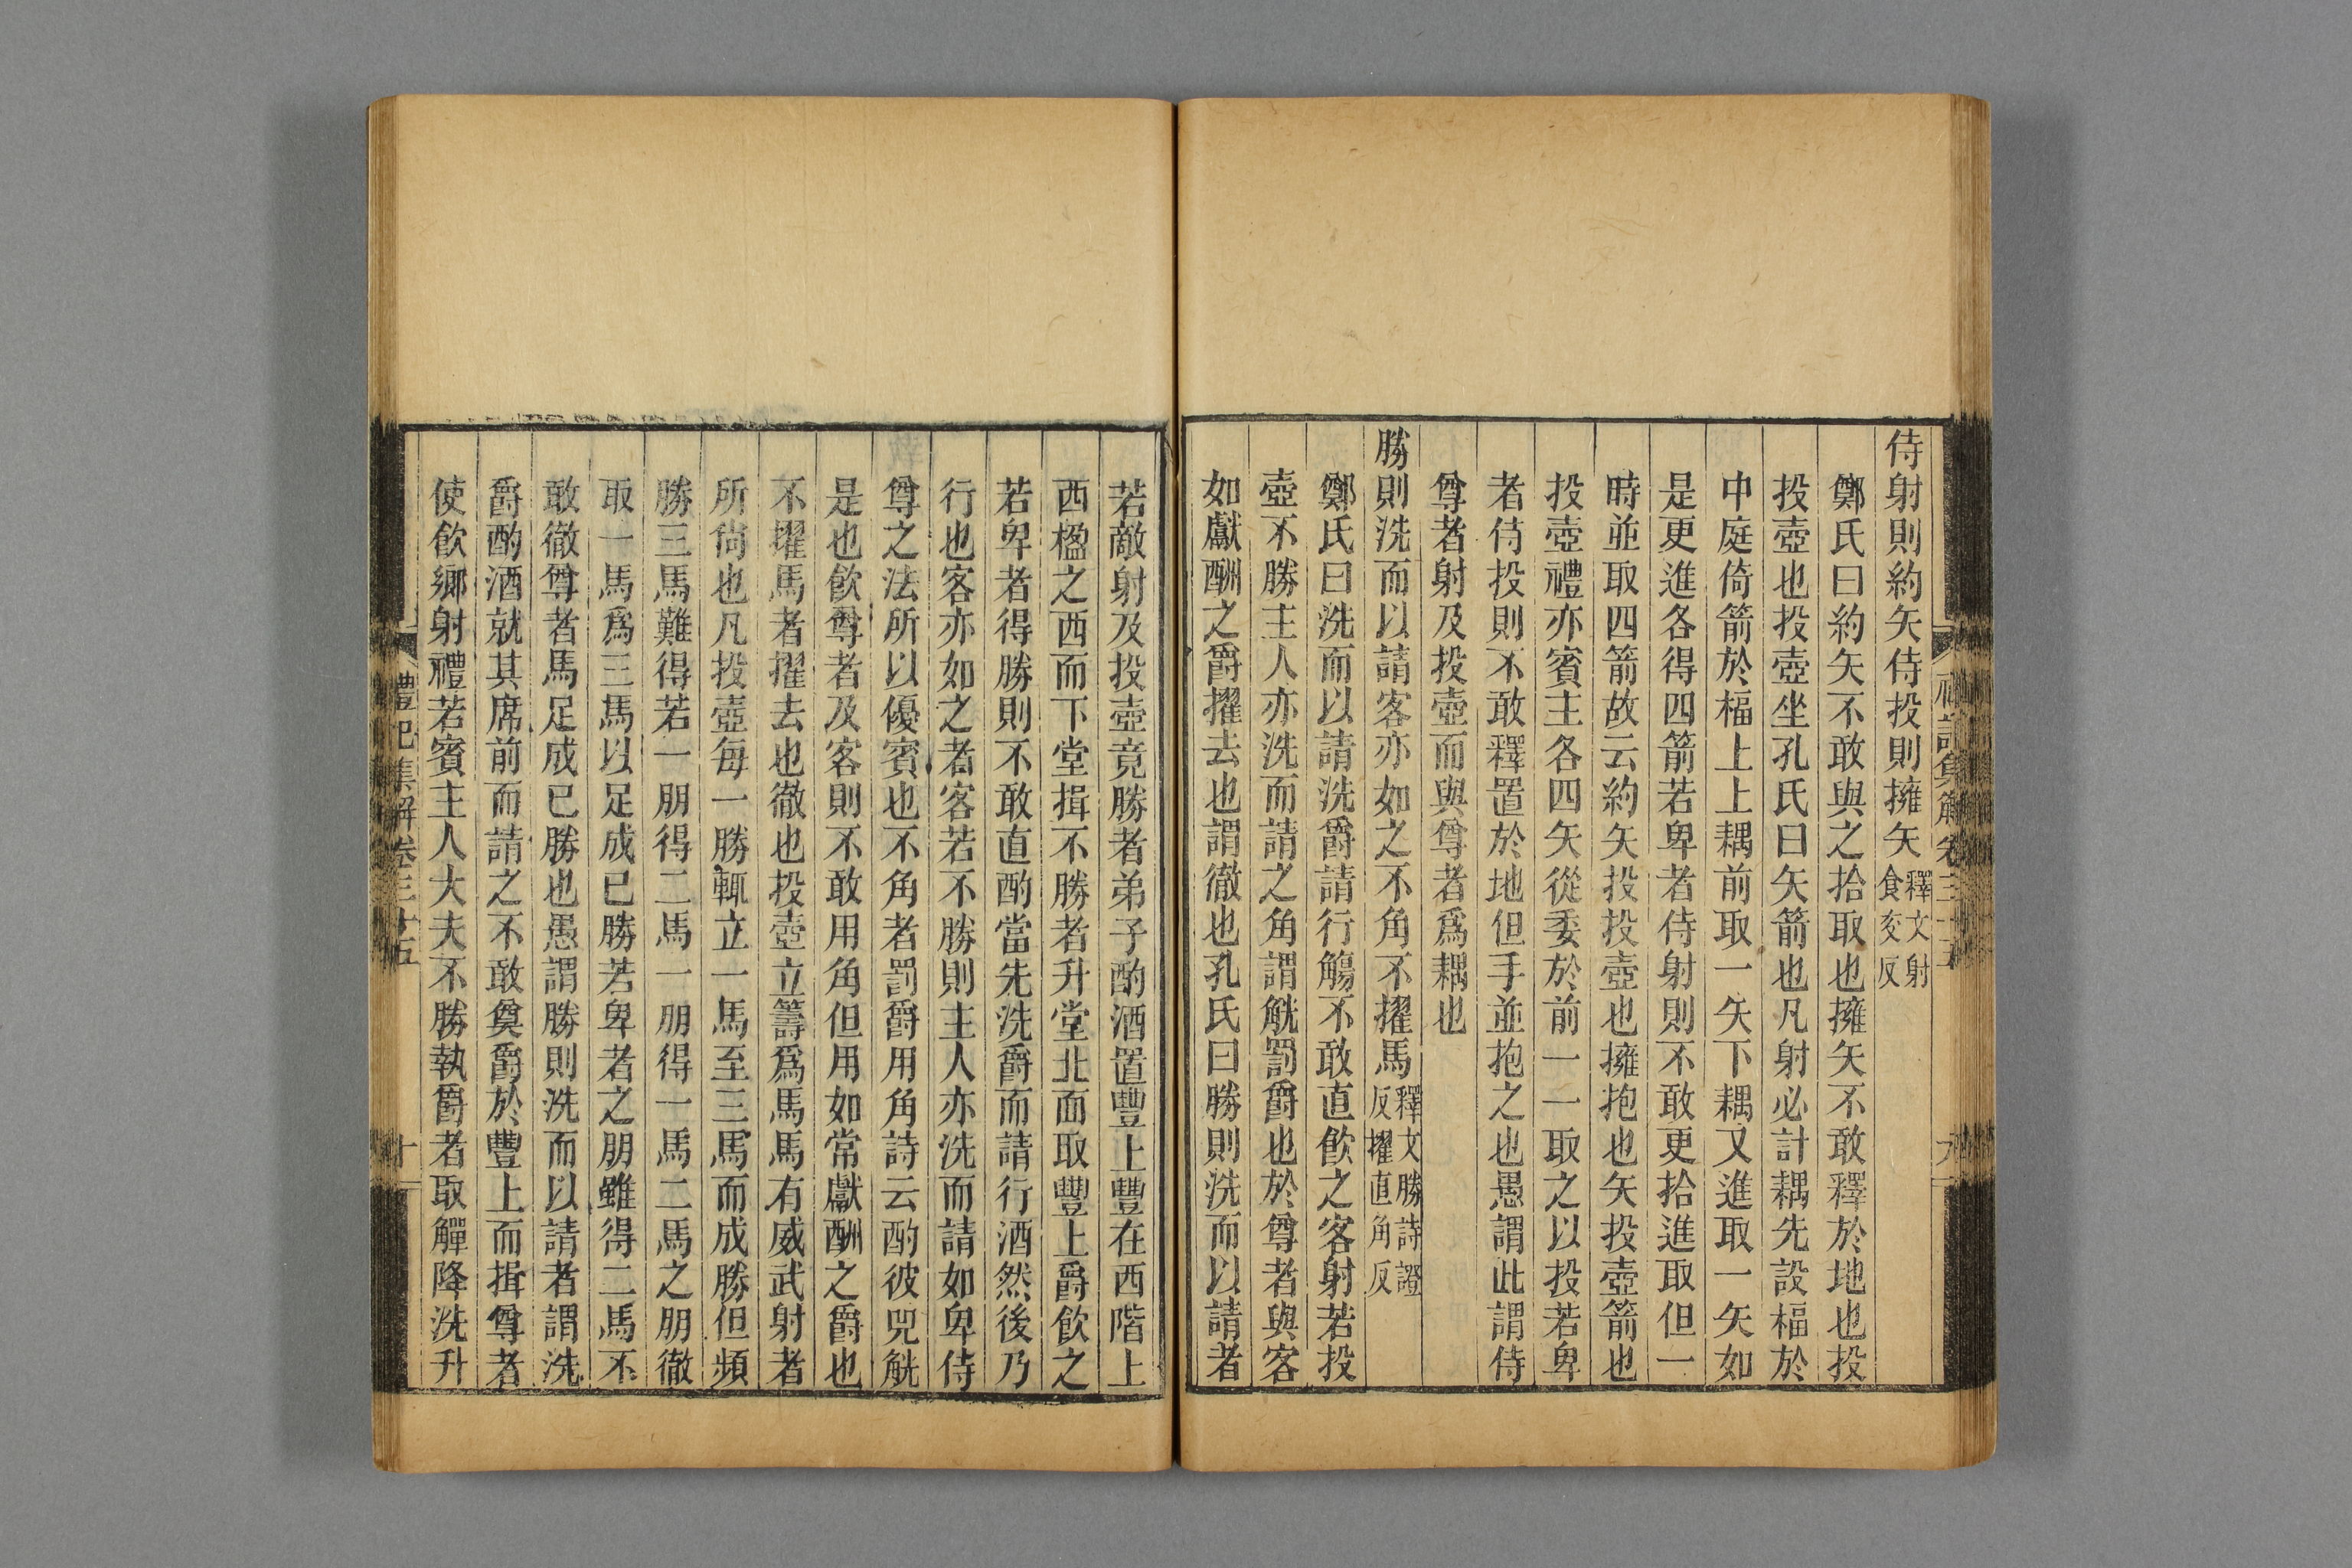 侍射則約矢侍投則擁矢釋文射食夜反
鄭氏曰約矢不敢與之拾取也擁矢不敢釋於地也投
投壺也投壺坐孔氏曰矢箭也凡射必計耦先設楅於
中庭倚箭於楅上上耦前取一矢下耦又進取一矢如
是更進各得四箭若卑者侍射則不敢更拾進取但一
時並取四箭故云約矢投投壺也擁抱也矢投壺箭也
投壺禮亦賓主各四矢從委於前一一取之以投若卑
者侍投則不敢釋置於地但手並抱之也愚謂此謂侍
尊者射及投壺而與尊者爲耦也
勝則洗而以請客亦如之不角不擢馬釋文勝詩證反擢直角反
鄭氏曰洗而以請洗爵請行觴不敢直飲之客射若投
壺不勝主人亦洗而請之角謂觥罰爵也於尊者與客
如獻酬之爵擢去也謂徹也孔氏曰勝則洗而以請者
若敵射及投壺竟勝者弟子酌酒置豐上豐在西階上
西楹之西而下堂揖不勝者升堂北面取豐上爵飲之
若卑者得勝則不敢直酌當先洗爵而請行酒然後乃
行也客亦如之者客若不勝則主人亦洗而請如卑侍
尊之法所以優賓也不角者罰爵用角詩云酌彼兕觥
是也飲尊者及客則不敢用角但用如常獻酬之爵也
不擢馬者擢去也徹也投壺立籌爲馬馬有威武射者
所尚也凡投壺每一勝輒立一馬至三馬而成勝但頻
勝三馬難得若一朋得二馬一朋得一馬二馬之朋徹
取一馬爲三馬以足成已勝若卑者之朋雖得二馬不
敢徹尊者馬足成已勝也愚謂勝則洗而以請者謂洗
爵酌酒就其席前而請之不敢奠爵於豐上而揖尊者
使飲鄉射禮若賓主人大夫不勝執爵者取觶降洗升
禮記集解卷三十五
十